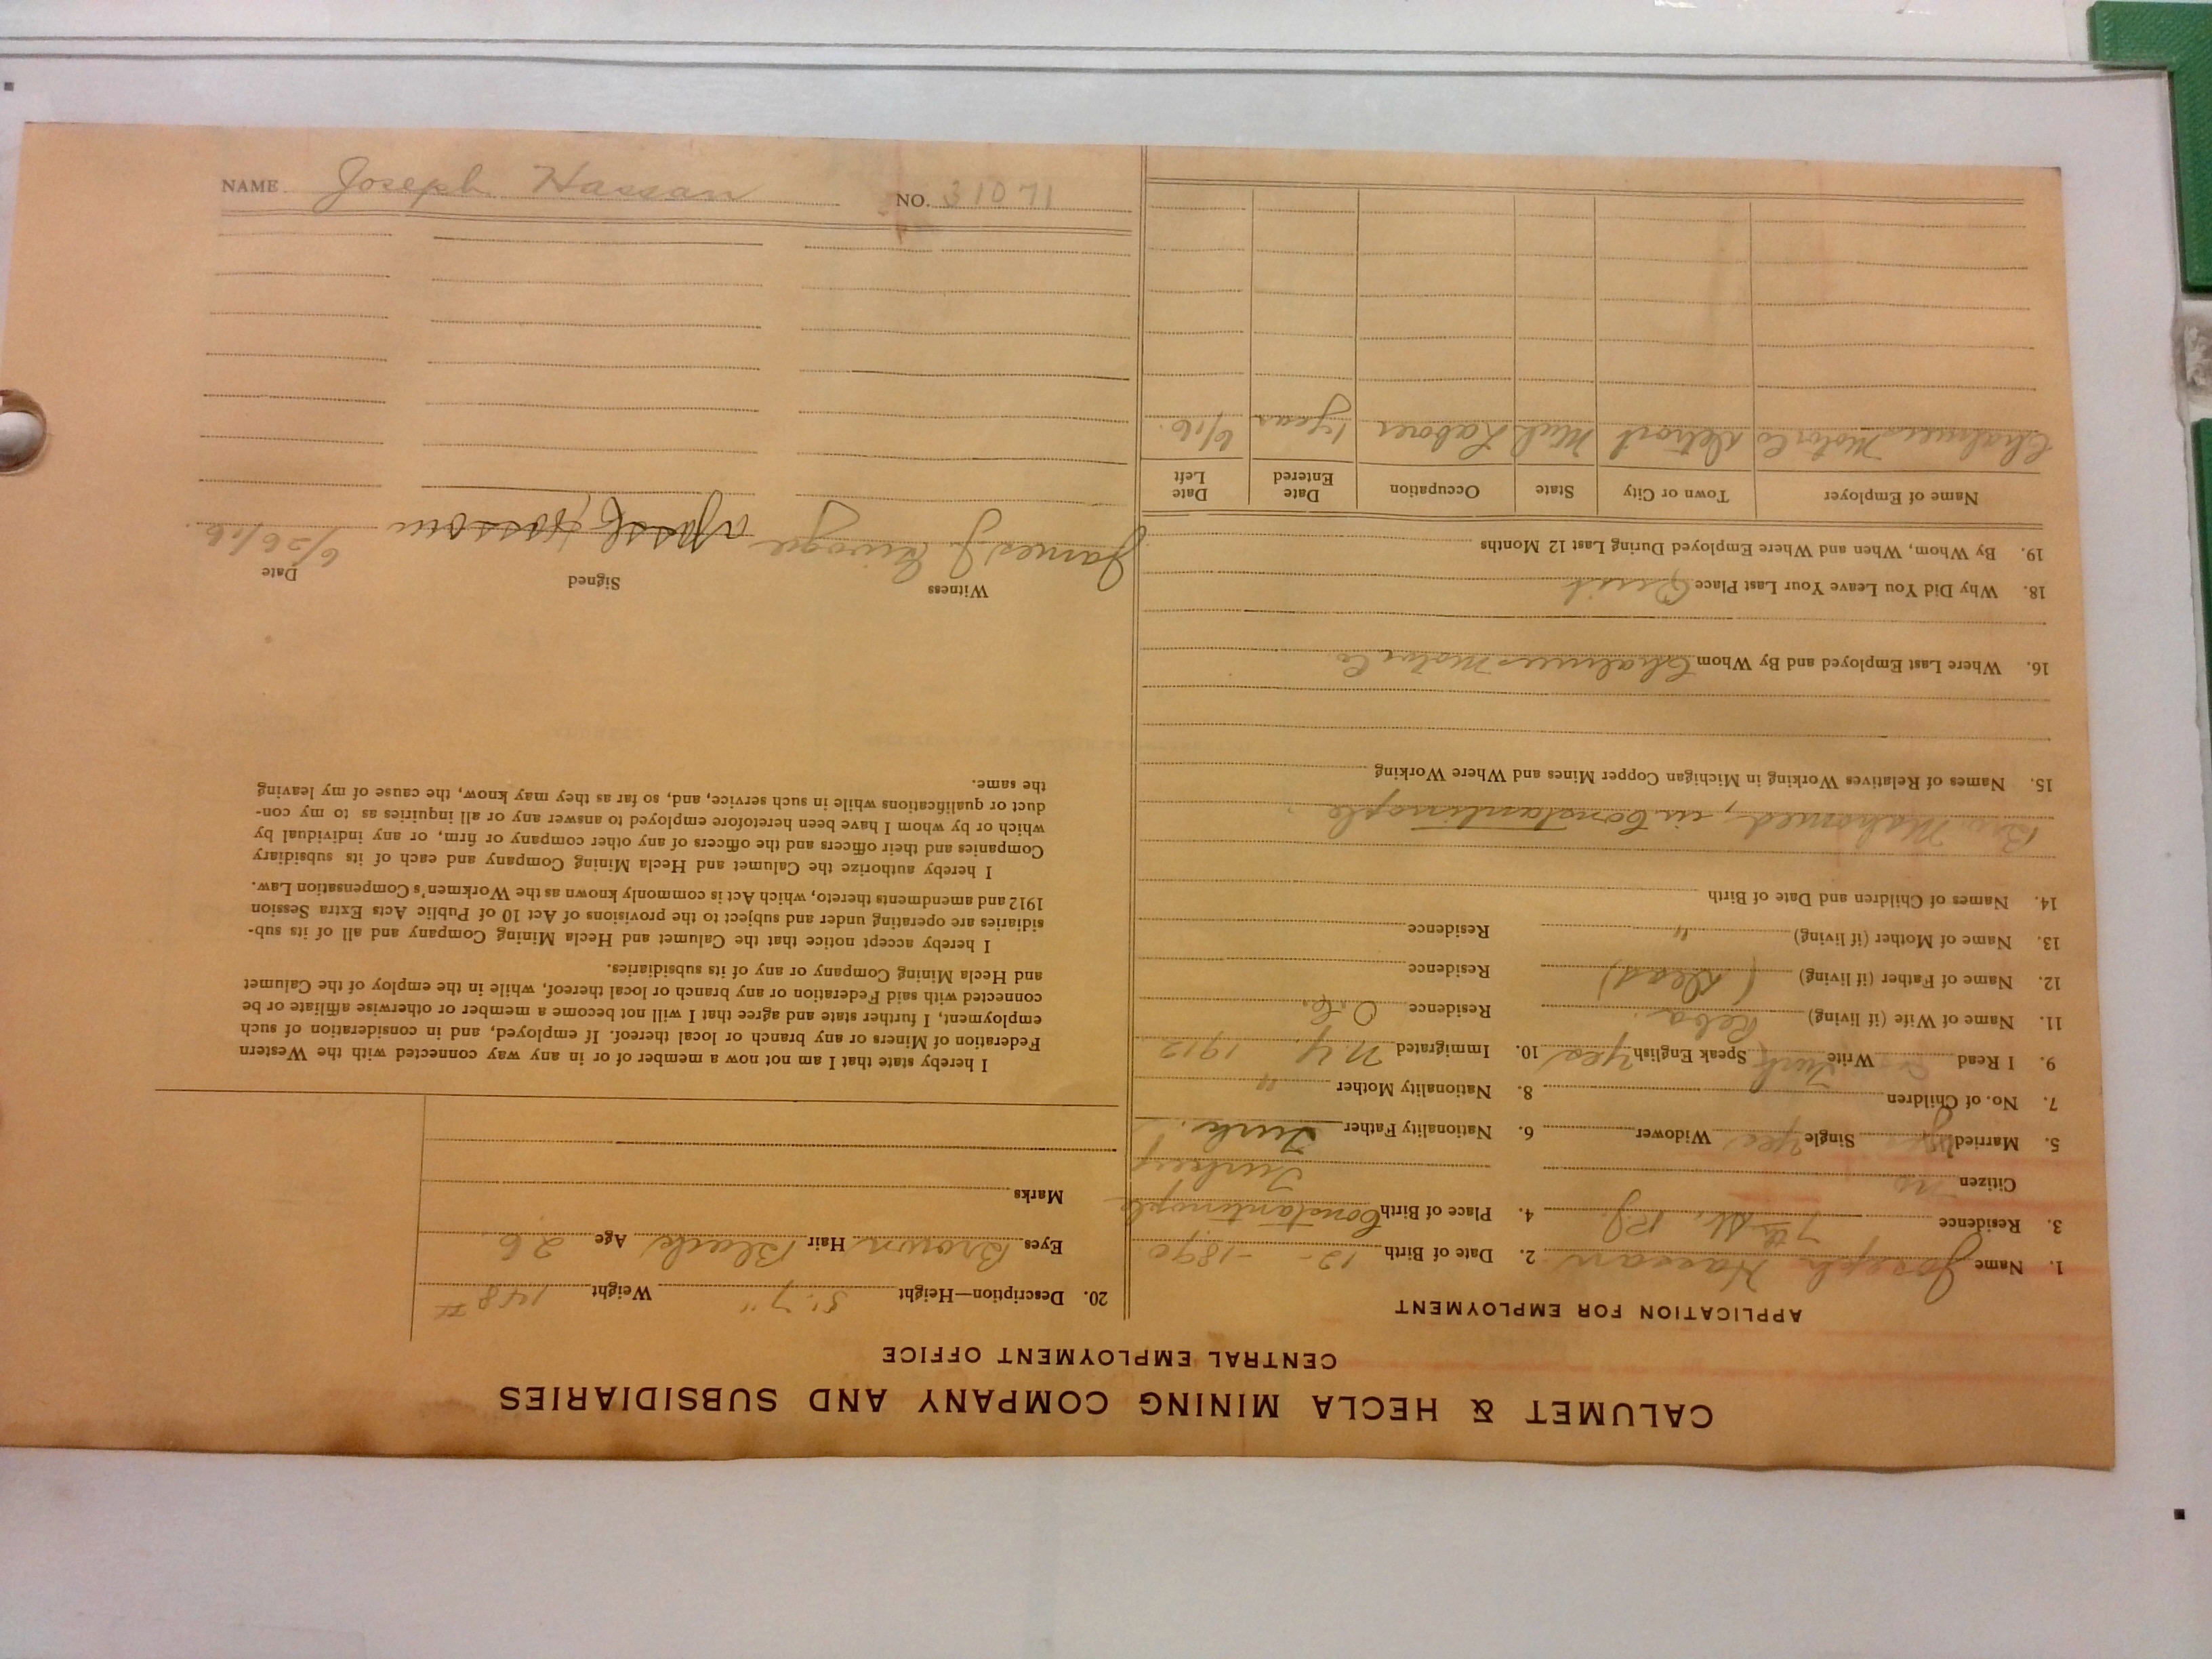 CALUMET & HECLA MINING COMPANY AND SUBSIDIARIES
CENTRAL EMPLOYMENT OFFICE
APPLICATION FOR EMPLOYMENT
1. Name Joseph Hassan 2. Date of Birth 12 - -1890
3. Residence 7th St., Rj. 4. Place of Birth Constantinople
Citizen no Turkey
5. Married Single Yes Widower 6. Nationality Father Turk.
7. No. of Children 8. Nationality Mother "
9. I Read Write Turk Speak English Yes 10. Immigrated N.Y. 1912
11. Name of Wife (if living) Reba. Residence O. Co.
12. Name of Father (if living) (Dead) Residence
13. Name of Mother (if living) " Residence
14. Names of Children and Date of Birth
Bro. Mahomed, in Constantinople
15. Names of Relatives Working in Michigan Copper Mines and Where Working
16. Where Last Employed and By Whom Chalmers Motor Co
18. Why Did You Leave Your Last Place Quit
19. By Whom, When and Where Employed During Last 12 Months
Name of Employer Town or City State Occupation Date Entered Date Left
Chalmers Motor Co Detroit Mich Laborer 1 year 6/16.
20. Description—Height 5' 7" Weight 148 #
Eyes Brown Hair Black Age 26
Marks
I hereby state that I am not now a member of or in any way connected with the Western
Federation of Miners or any branch or local thereof. If employed, and in consideration of such
employment, I further state and agree that I will not become a member or otherwise affiliate or be
connected with said Federation or any branch or local thereof, while in the employ of the Calumet
and Hecla Mining Company or any of its subsidiaries.
I hereby accept notice that the Calumet and Hecla Mining Company and all of its sub-
sidiaries are operating under and subject to the provisions of Act 10 of Public Acts Extra Session
1912 and amendments thereto, which Act is commonly known as the Workmen's Compensation Law.
I hereby authorize the Calumet and Hecla Mining Company and each of its subsidiary
Companies and their officers and the officers of any other company or firm, or any individual by
which or by whom I have been heretofore employed to answer any or all inquiries as to my con-
duct or qualifications while in such service, and, so far as they may know, the cause of my leaving
the same.
Witness Signed Date
James J. 6/26/16
NAME Joseph Hassan NO. 31071